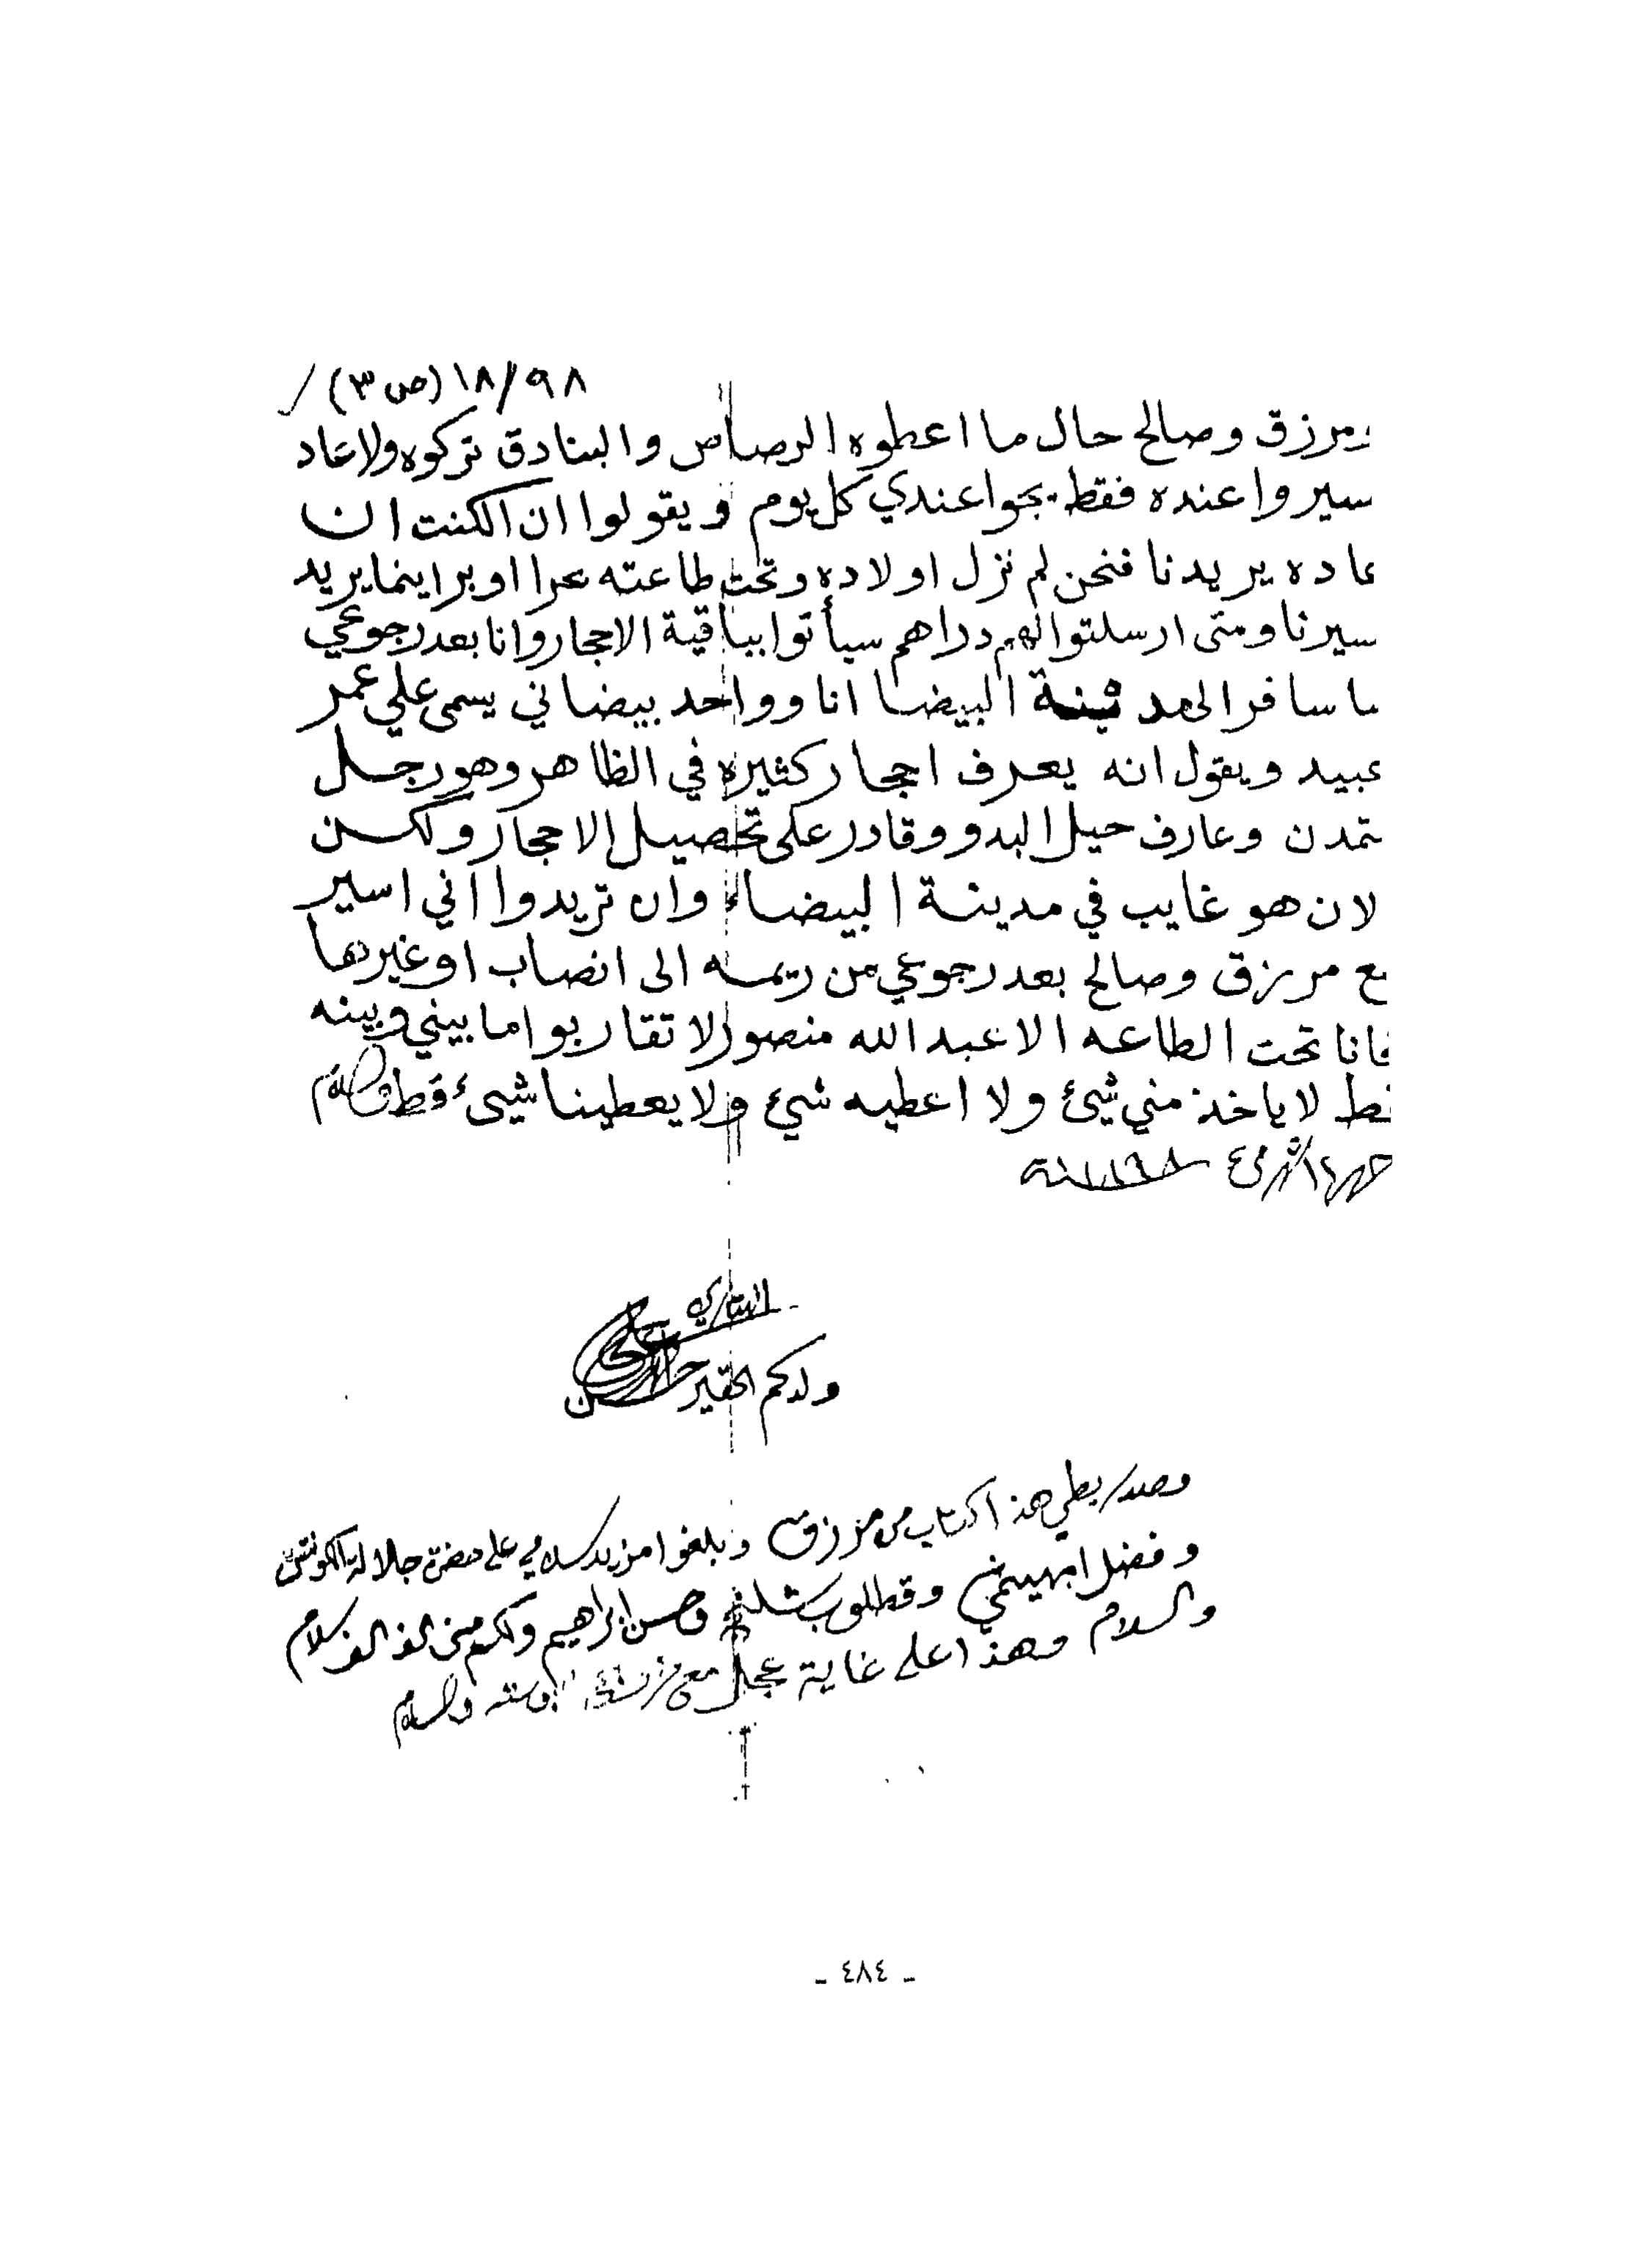 ١٨/٩٨ (ص ٣)
ومرزق وصالح حال ما اعطوه الرصاص والبنادق تركوه ولا عاد
سيروا عنده فقط يجوا عندي كل يوم ويقولوا ان الكنت ان
عاده يريدنا فنحن لم نزل اولاده وتحت طاعته بحرا او برا اينما يريد
سيرنا ومتى ارسلتوا لهم دراهم سيأتوا بباقية الاحجار وانا بعد رجوعي
سافر الى مدينة البيضا انا وواحد بيضاني يسمى علي عمر
عبيد ويقول انه يعرف احجار كثيره في الظاهر وهو رجل
تمدن وعارف حيل البدو وقادر على تحصيل الاحجار ولكن
لان هو غايب في مدينة البيضاء وان تريدوا اني اسير
مع مرزق وصالح بعد رجوعي من ريمه الى انصاب او غيرها
فانا تحت الطاعه الا عبد الله منصور لا تقاربوا ما بيني وبينه
قط لا ياخذ مني شيئ ولا اعطيه شيء ولا يعطينا شيىء قط والسلام
سنة ١٨٩٨
ولدكم الحقير
وصدر بطي هذا كتاب من مرزق وبلغوا مزيد سلامي على حضرة جلالة الكونتس
وفضل وحسن ابراهيم ولكم مني الف الف سلام
والسلام وهذا على غاية عجل والسلام
- ٤٨٤ -